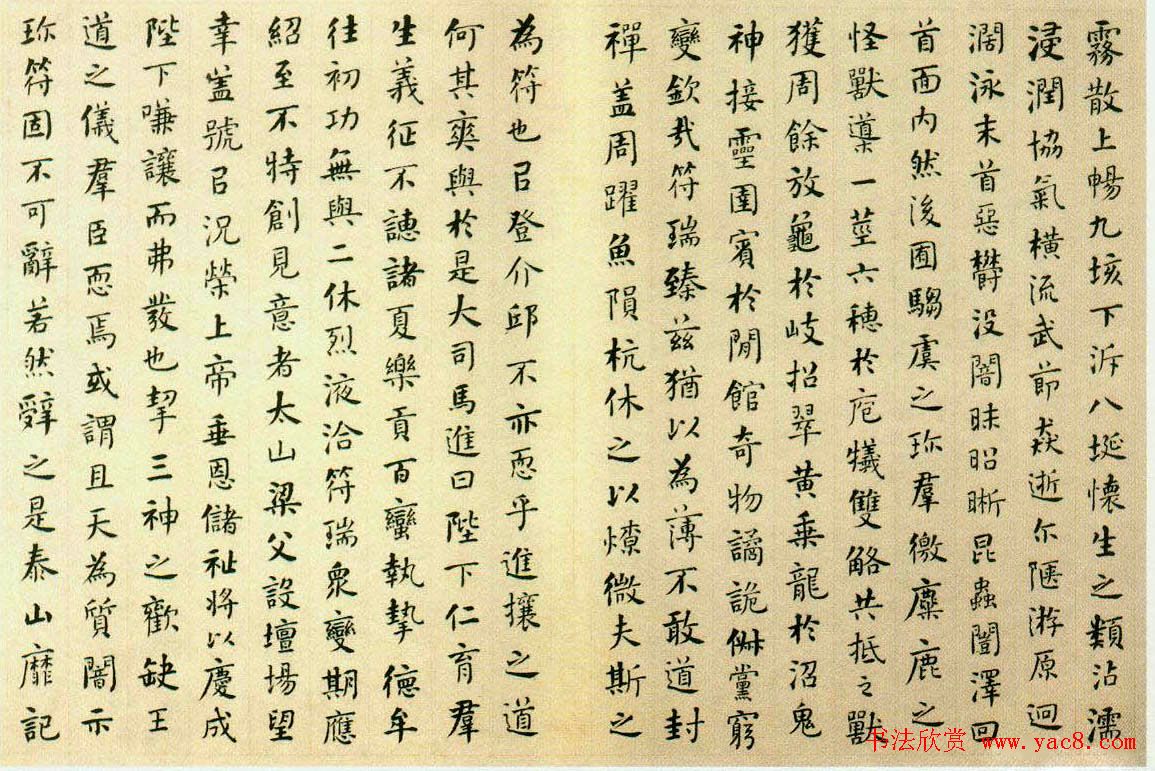 霧散上暢九垓下泝八埏懷生之類沾濡
浸潤協氣橫流武節猋逝尒陿游原迥
濶泳末首惡欝没闇昧昭晣昆蟲闓澤回
首面内然後囿騶虞之珎羣徼麋鹿之
怪獸導一莖六穗於庖犧雙觡共抵之獸
獲周餘放龜於岐招翠黄乗龍於沼鬼
神接靈圉賓於閒館奇物譎詭俶黨窮
變欽哉符瑞臻兹猶以為薄不敢道封
禪盖周躍魚隕杭休之以燎微夫斯之
為符也㠯登介邱不亦恧乎進攘之道
何其爽與於是大司馬進曰陛下仁育羣
生義征不譓諸夏樂貢百蠻執摯德牟
往初功無與二休烈液洽符瑞衆變期應
紹至不特創見意者太山梁父設壇場望
幸盖號㠯况榮上帝垂恩儲祉將以慶成
陛下嗛讓而弗發也挈三神之歡缺王
道之儀羣臣恧焉或謂且天為質闇示
珎符固不可辭若然辤之是泰山靡記
书法欣赏 www.yac8.com